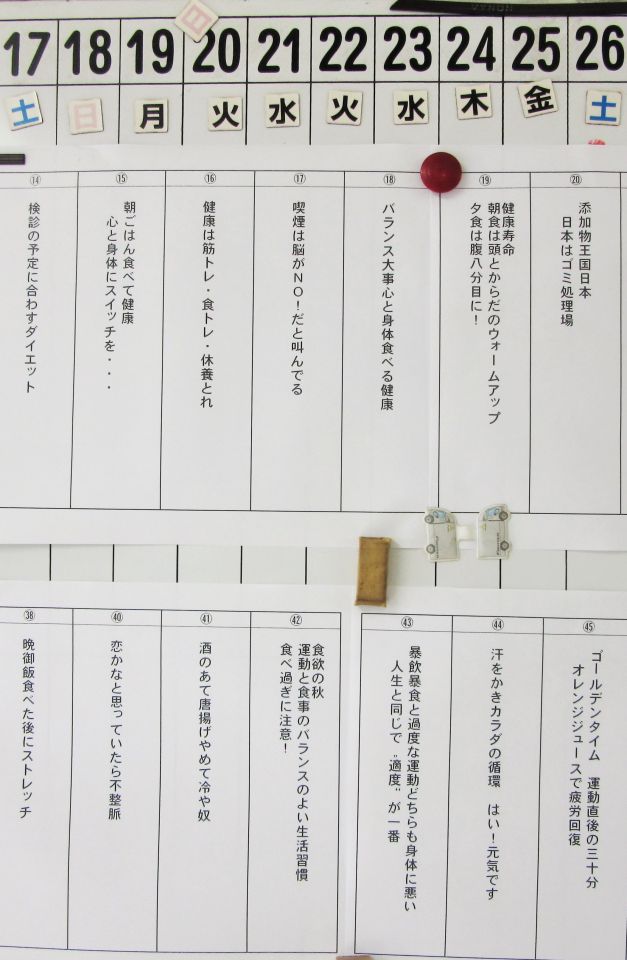 日
17 18 19 20 21 22 23 24 25 26
土 日 月 火 水 火 水 木 金 土
⑭
検診の予定に合わすダイエット
⑮
朝ごはん食べて健康
心と身体にスイッチを・・・
⑯
健康は筋トレ・食トレ・休養とれ
⑰
喫煙は脳がNO！だと叫んでる
⑱
バランス大事心と身体食べる健康
⑲
健康寿命
朝食は頭とからだのウォームアップ
夕食は腹八分目に！
⑳
添加物王国日本
日本はゴミ処理場
㊳
晩御飯食べた後にストレッチ
㊵
恋かなと思っていたら不整脈
㊶
酒のあて唐揚げやめて冷や奴
㊷
食欲の秋
運動と食事のバランスのよい生活習慣
食べ過ぎに注意！
㊸
暴飲暴食と過度な運動どちらも身体に悪い
人生と同じで〝適度〟が一番
㊹
汗をかきカラダの循環　はい！元気です
㊺
ゴールデンタイム　運動直後の三十分
オレンジジュースで疲労回復